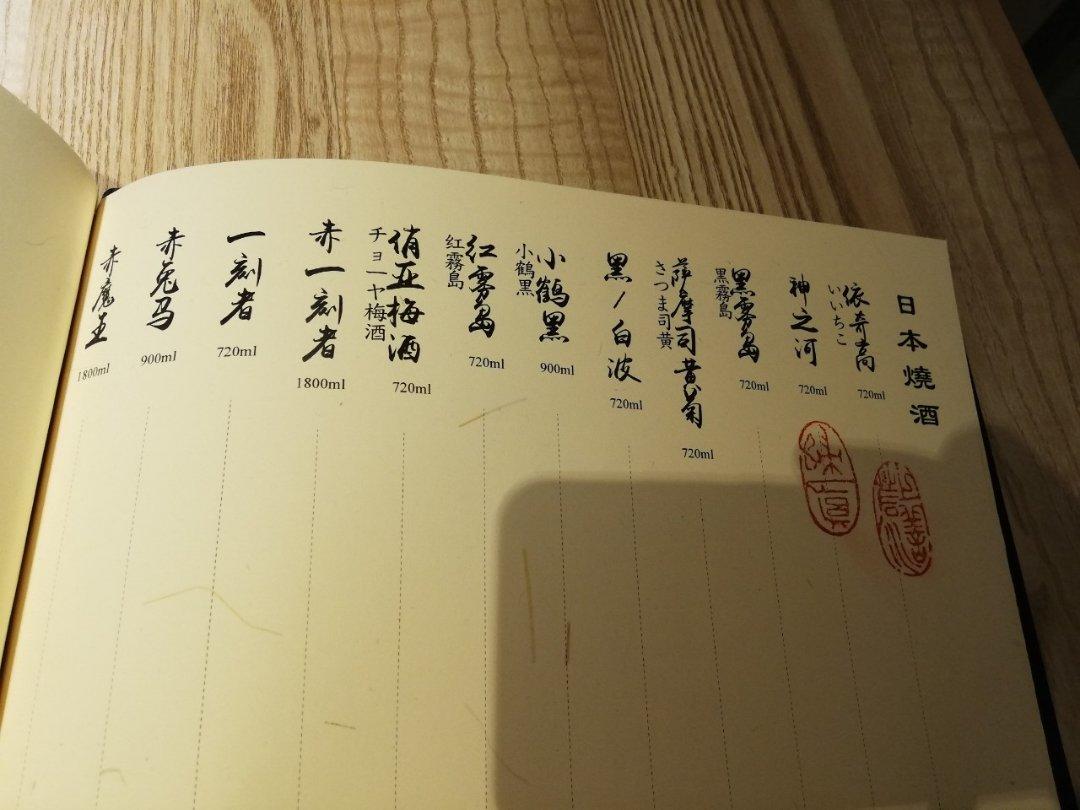 日本燒酒
依奇高
いいちこ
720ml
神之河
720ml
黑雾岛
黒霧島
720ml
萨摩司黄菊
さつま司黄
720ml
黑ノ白波
720ml
小鶴黑
小鶴黒
900ml
红雾岛
红霧島
720ml
俏亚梅酒
チョーヤ梅酒
720ml
赤一刻者
1800ml
一刻者
720ml
赤兔马
900ml
赤魔王
1800ml